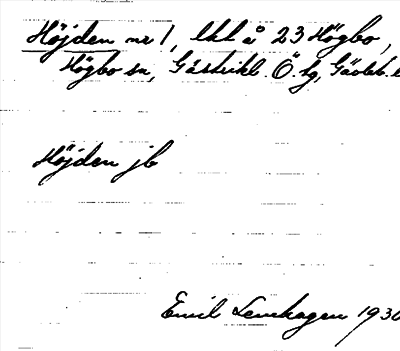 Höjden nr 1, lht å 23 Högbo,
Högbo sn, Gästrikl. Ö. tg, Gävleb. l
Höjden jb
Emil Lenhagen 1930